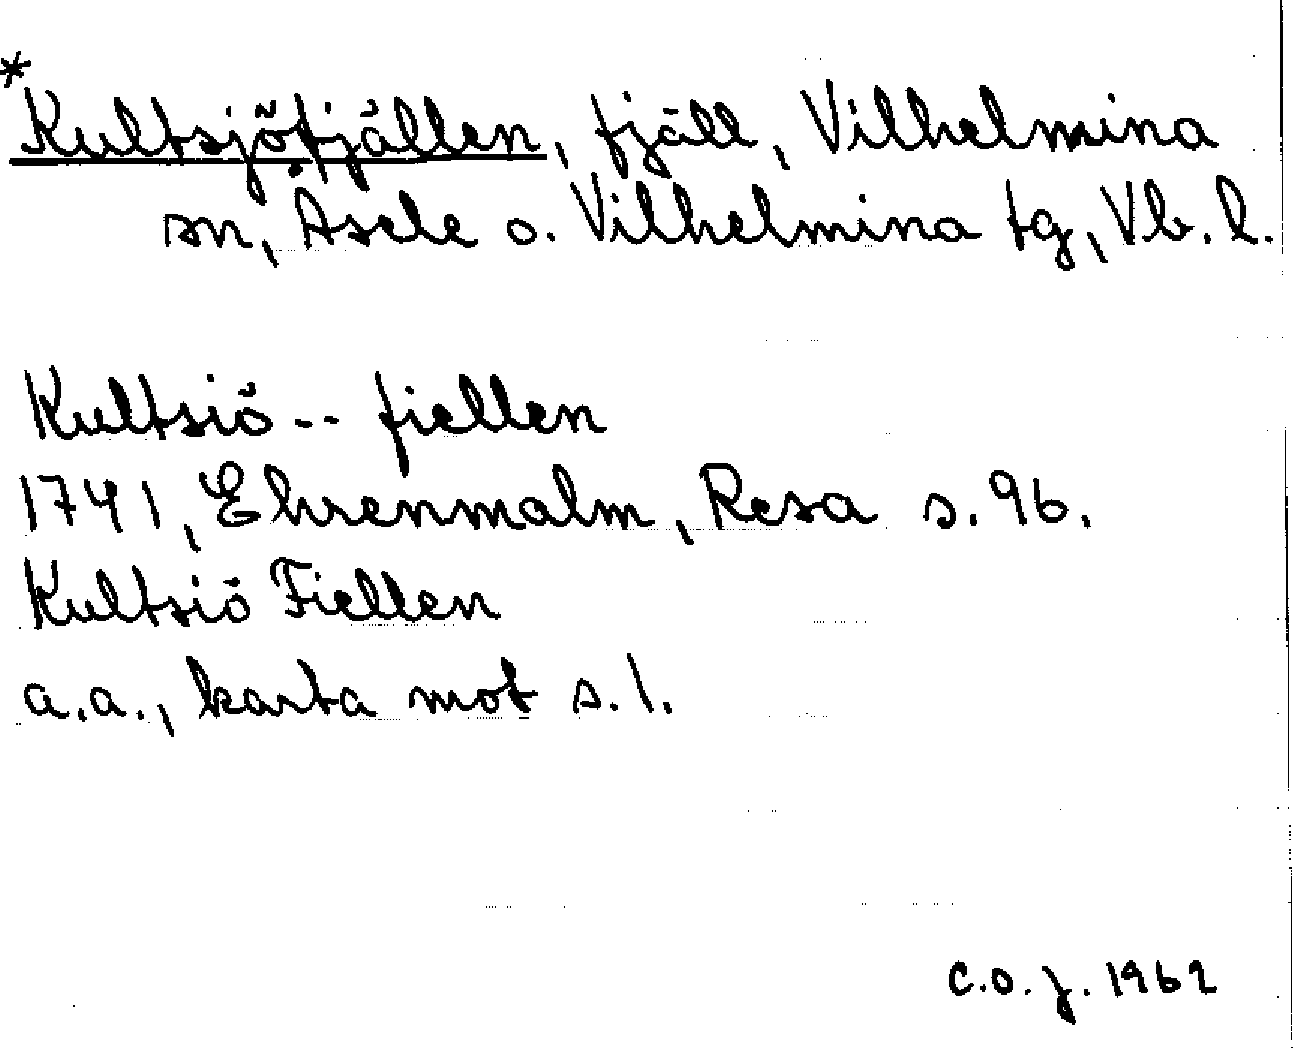 *Kultsjöfjällen, fjäll, Vilhelmina
sn, Åsele o. Vilhelmina tg, Vb. l.
Kultsiö -- fiellen
1741, Ehrenmalm, Resa s. 96.
Kultsiö Fiellen
a.a., karta mot s. 1.
C.O.J. 1962